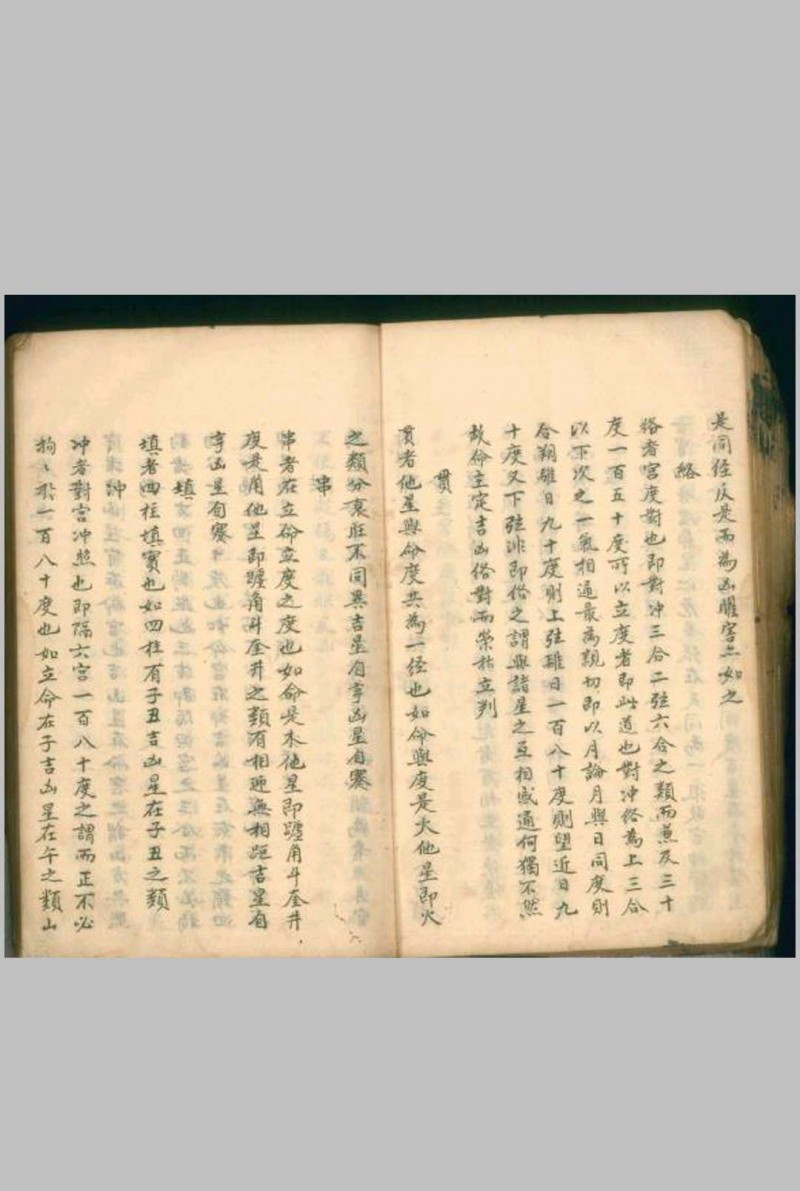 是同經度是而為凶曜害亦如之
絡
絡者宮度對也即對冲三合二弦六合之類而兼及三十
度一百五十度可以立度者即此道也對冲俗為上三合
以下次之一氣相通最為親切即以月論月與日同度則
合朔離日九十度則上弦離日一百八十度則望近日九
十度又下弦非即俗之謂與諸星之互相感通何獨不然
故命主定吉凶俗對而榮枯立判
貫
貫者他星與命度共為一經也如命與度是火他星即火
之類分衰旺不同異吉星自享凶星自塞
串
串者在立命立度之度也如命是木他星即躔角斗奎井
度是角他星即躔角斗奎井之類有相迎無相距吉星自
享凶星自塞
填
填者四柱填實也如四柱有子丑吉凶星在子丑之類
冲
冲者對宮冲照也即隔六宮一百八十度之謂而正不必
拘〻於一百八十度也如立命在子吉凶星在午之類山